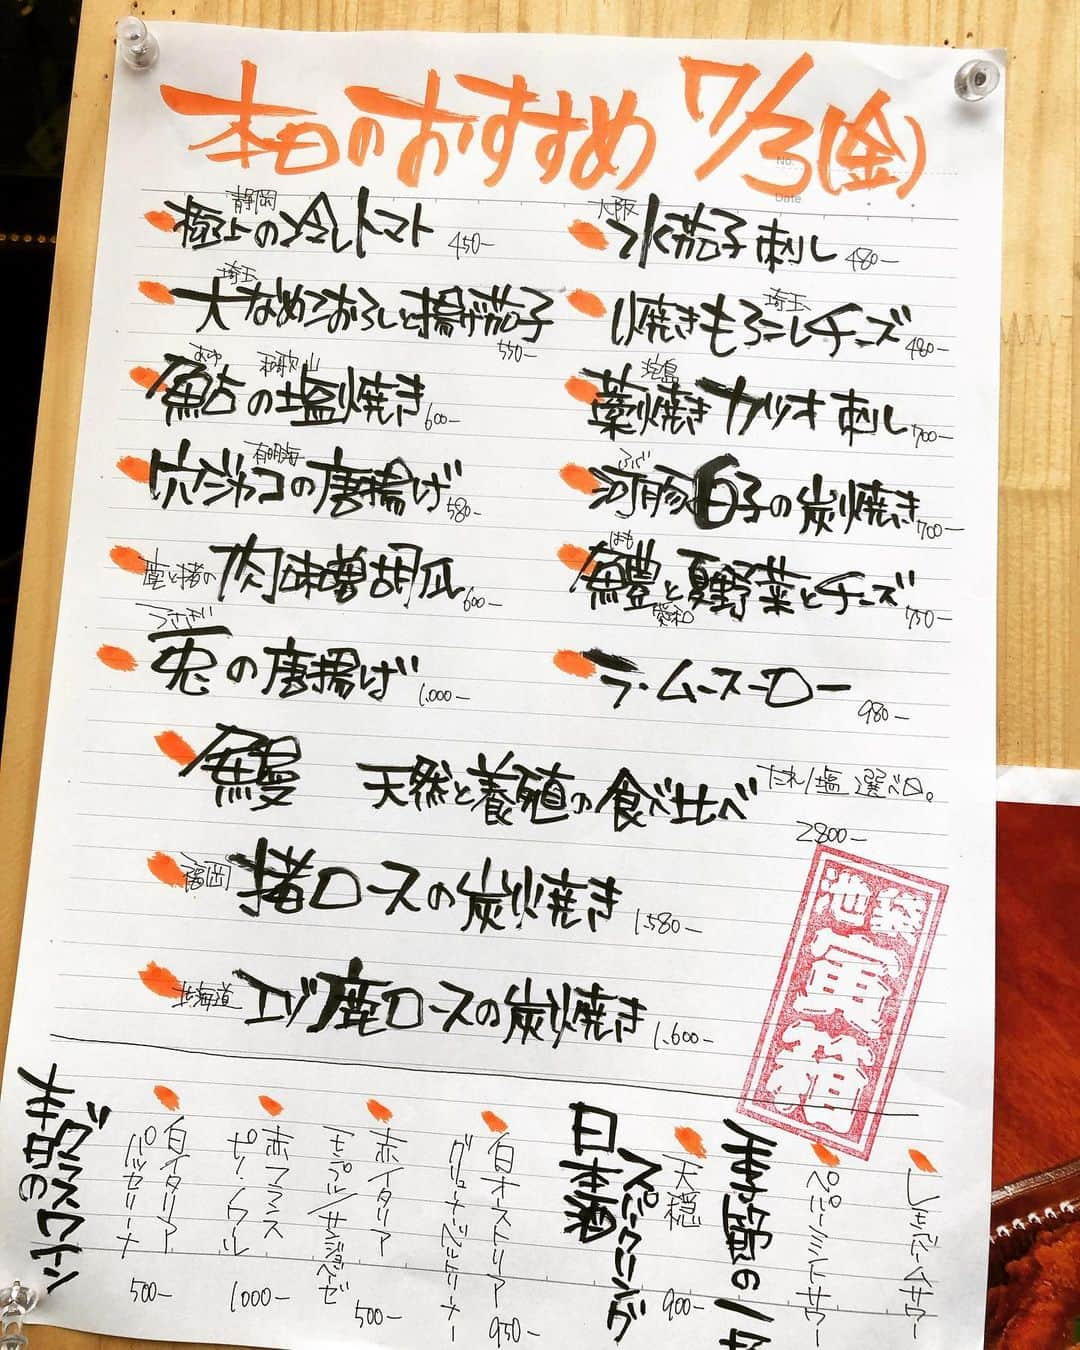 本日のおすすめ 7/3(金)
静岡
極上の冷しトマト 450-
大阪
水茄子刺し 480-
埼玉
大なめこおろしと揚げ茄子 550-
埼玉
焼きもろこしチーズ 480-
あゆ 和歌山
鮎の塩焼き 600-
藁焼きカツオ刺し 700-
有明海
穴ジャコの唐揚げ 580-
ふぐ
河豚白子の炭焼き 700-
鹿と猪の肉味噌胡瓜 600-
はも
鱧と夏野菜とチーズ 750-
愛知
うさぎ
兎の唐揚げ 1,000-
ラ・ムースーロー 980-
鰻 天然と養殖の食べ比べ たれ/塩 選べ日。
2800-
福岡 猪ロースの炭火焼き 1,580-
北海道 エゾ鹿ロースの炭火焼き 1,600-
池袋
寅箱
本日のグラスワイン
白イタリア
パッセリーナ
500-
赤フランス
ピノ・ノワール
1000-
赤イタリア
モンテプル/サンジョベーゼ
500-
白オーストリア
グリューナーベルトリーナー
950-
日本酒
スパークリング
天穏
900-
季節の
ペパーミントサワー
レモンバームサワー